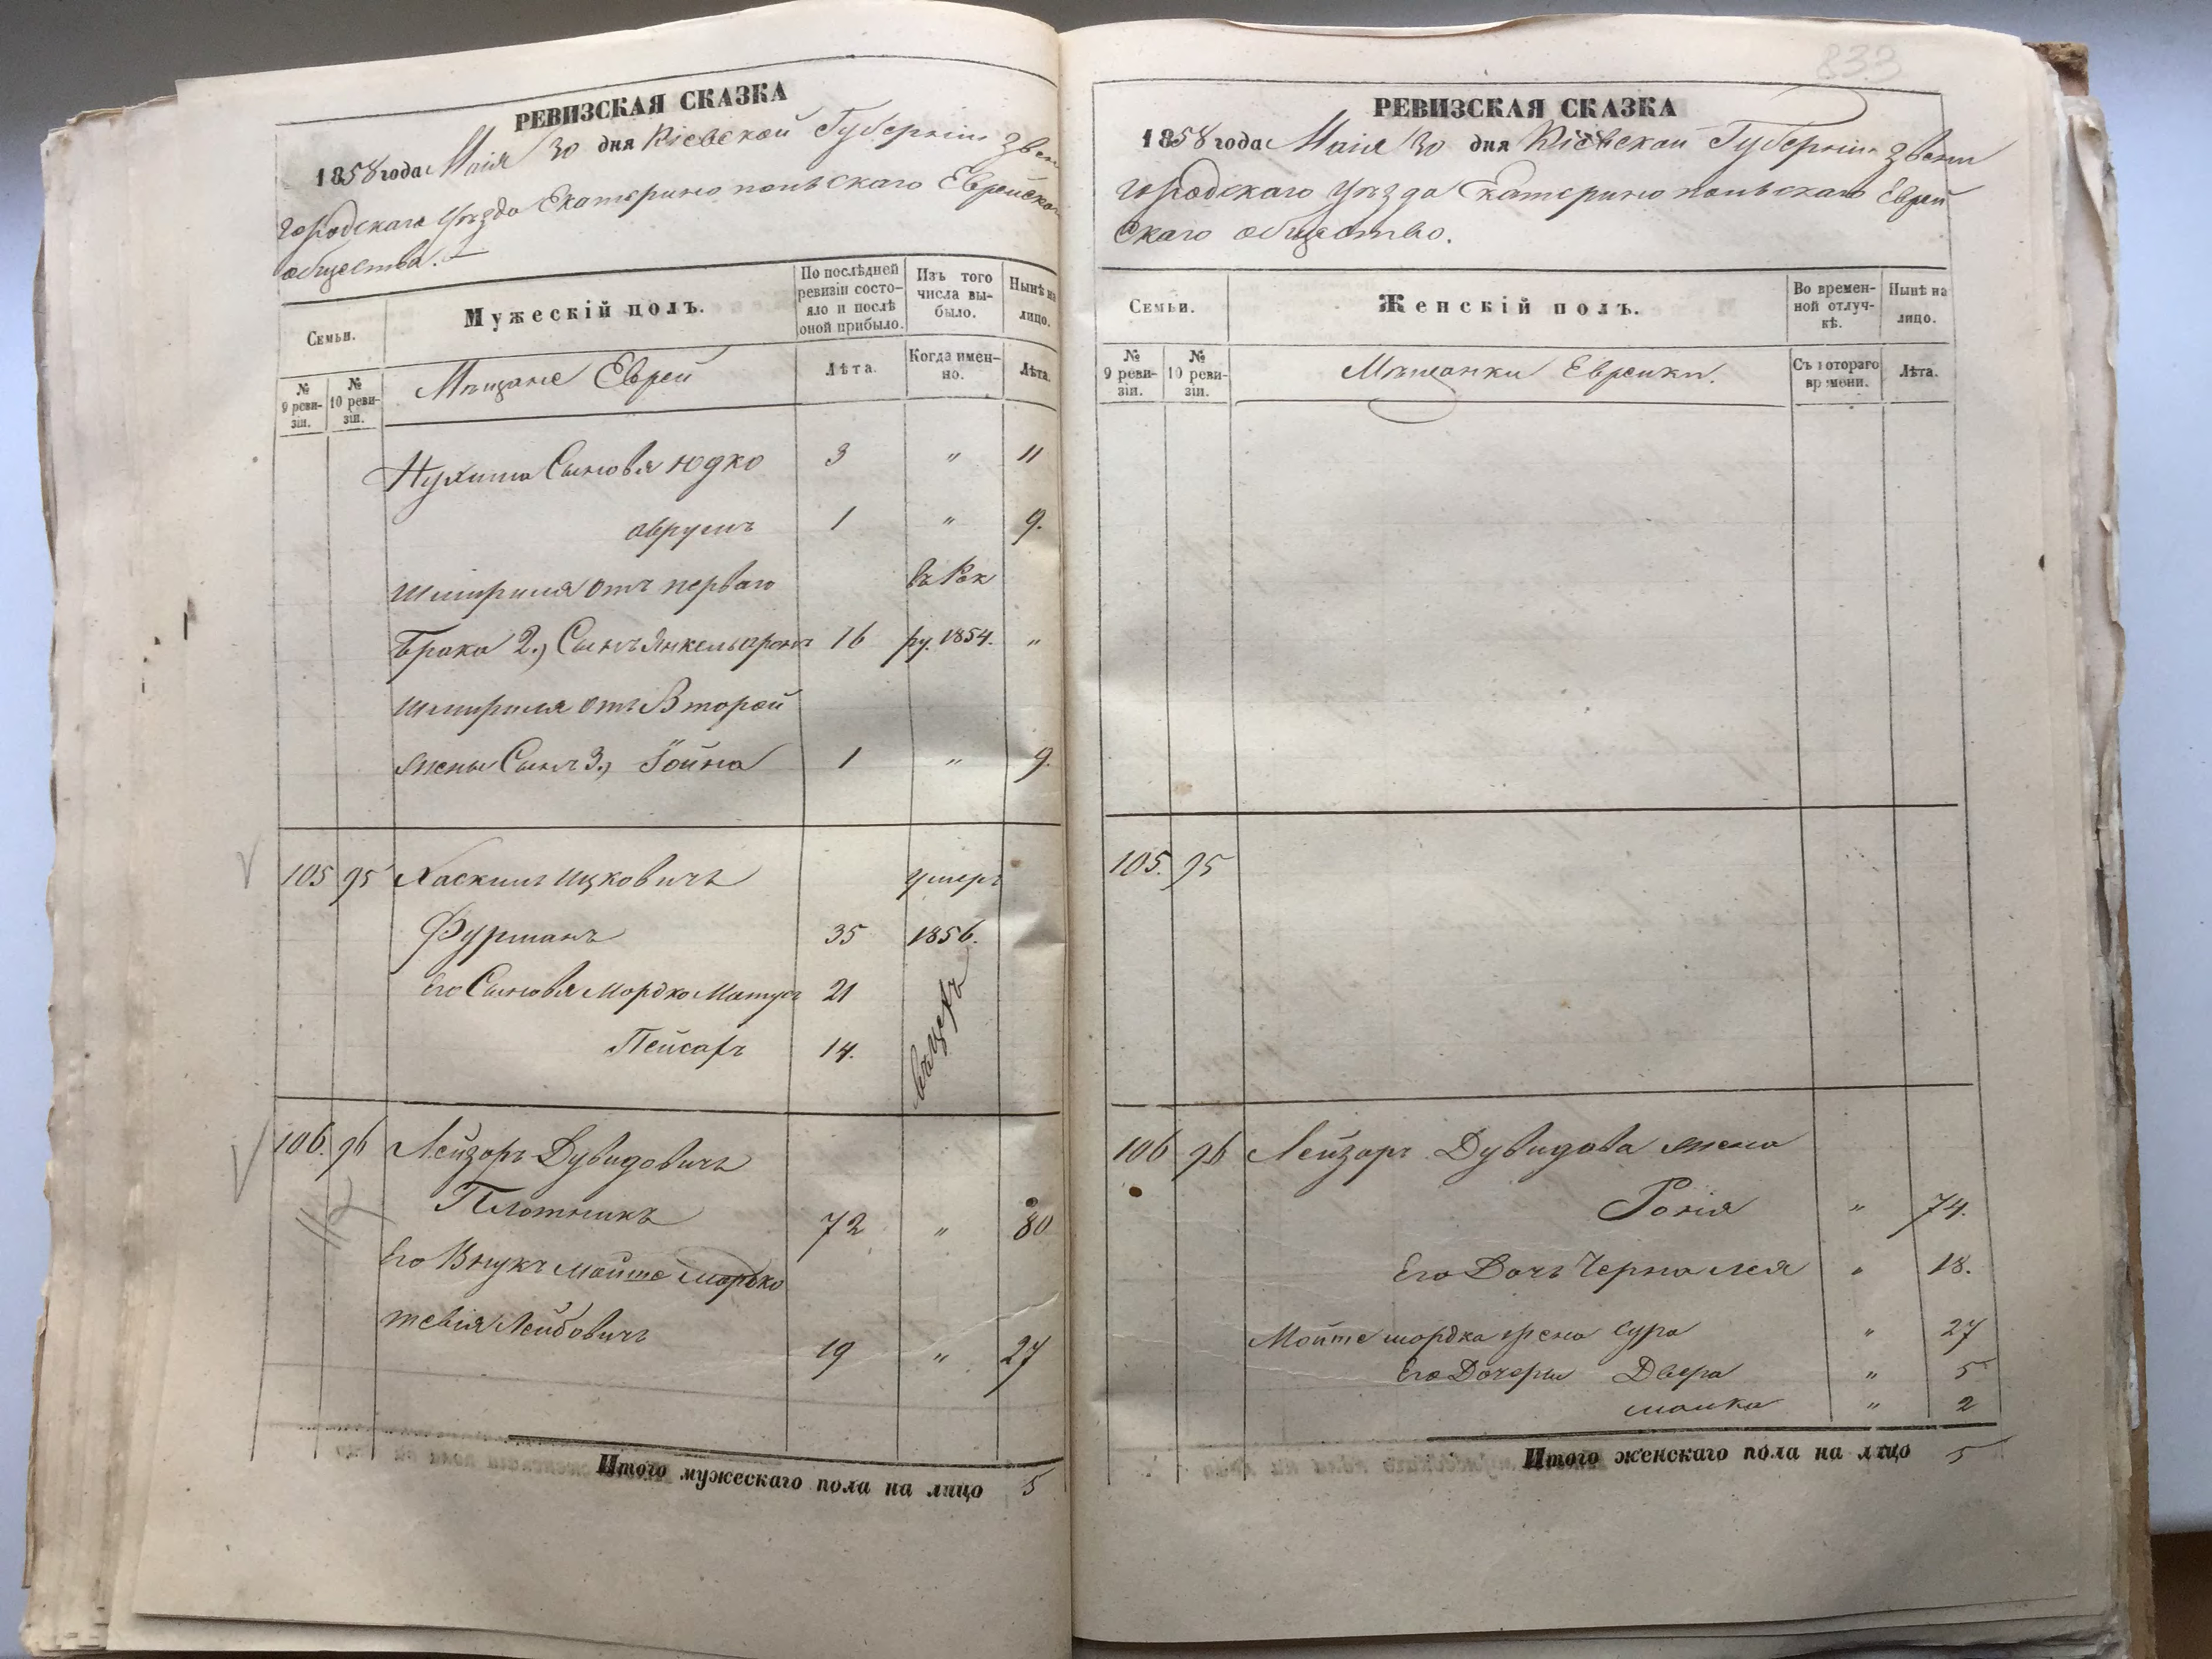 РЕВИЗСКАЯ СКАЗКА
1858 года Маія 30 дня Кіевской Губерніи Звени
городскаго уѣзда Екатеринопольскаго Еврейскаго
общества.
Семьи.
Мужескій полъ.
По послѣдней ревизіи состояло и послѣ оной прибыло.
Изъ того числа выбыло.
Нынѣ на лицо.
№ 9 ревизіи.
№ 10 ревизіи.
Мѣщане Евреи
Лѣта.
Когда именно.
Лѣта.
Нухима Сыновья Юдко 3 " 11
Аврумъ 1 " 9.
Шмириля отъ перваго въ Рек
брака 2.) Сынъ Янкель Аронъ 16 ру. 1854. "
Шмириля отъ Второй
жены Сынъ 3.) Іойна 1 " 9.
105 95 Хаскиль Ицковичъ умеръ
Фурманъ 35 1856.
Его Сыновья Мордко Матусъ 21
Пейсахъ 14.
106. 96 Лейзоръ Дувидовичъ
Плотникъ 72 " 80
Его Внукъ Мойше Мордко
Тевія Лейбовичъ 19 " 27
Итого мужескаго пола на лицо 5
833
РЕВИЗСКАЯ СКАЗКА
1858 года Маія 30 дня Кіевской Губерніи Звени
городскаго уѣзда Екатеринопольскаго Еврей
скаго общества.
Семьи.
Женскій полъ.
Во временной отлучкѣ.
Нынѣ на лицо.
№ 9 ревизіи.
№ 10 ревизіи.
Мѣщанки Еврейки.
Съ котораго времени.
Лѣта.
105. 95
106 96 Лейзоръ Дувидова жена
Ронія " 74.
Его Дочь Черна Лея " 18.
Мойше Мордка жена Сура " 27
Его Дочери Двера " 5
Малка " 2
Итого женскаго пола на лицо 5